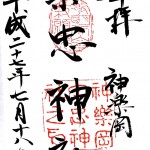 奉拝
神楽岡
宗忠神社
平成二十七年七月十八